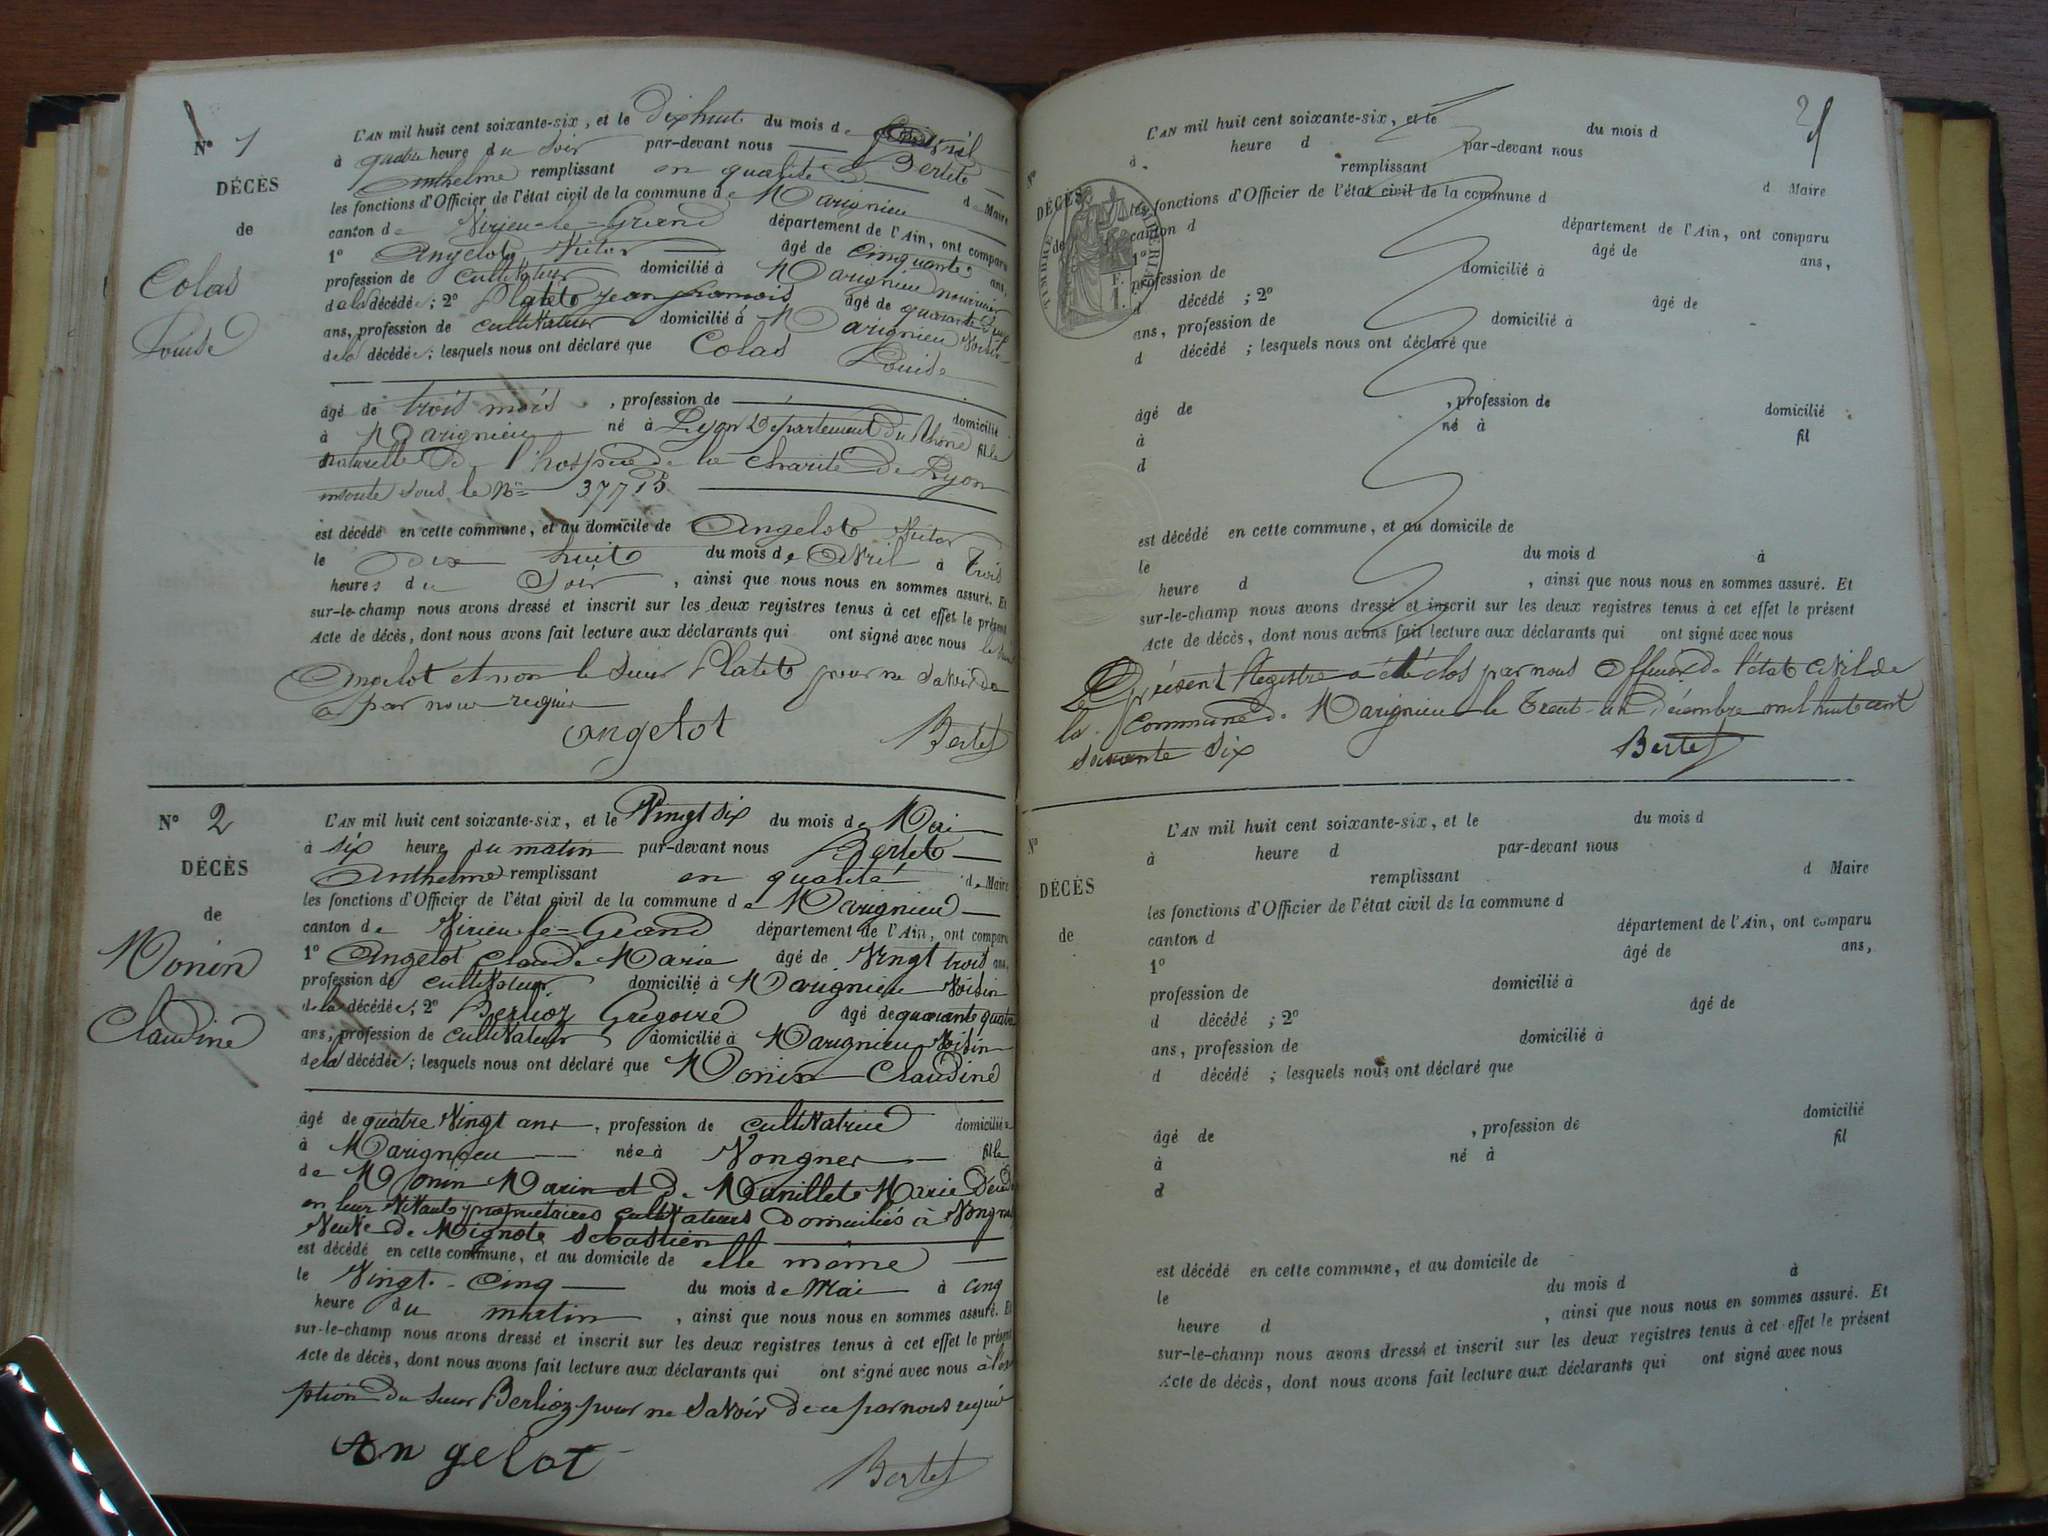 N° 1
DÉCÈS
de
Colas
Louise
L'AN mil huit cent soixante-six, et le Dix huit du mois de avril
à quatre heure du Soir par-devant nous Bertet
Anthelme remplissant en qualité de Maire
les fonctions d'Officier de l'état civil de la commune de Marignieu
canton de Virieu-le-Grand département de l'Ain, ont comparu
1° Angelot Victor âgé de Cinquante ans,
profession de cultivateur domicilié à Marignieu nourricier
de la décédée; 2° Platet Jean françois âgé de quarante deux
ans, profession de cultivateur domicilié à Marignieu Voisin
de la décédée; lesquels nous ont déclaré que Colas
Louise
âgé de trois mois, profession de domicilié
à Marignieu né à Lyon Département du Rhône fille
naturelle de l'hospice de la charité de Lyon
inscrite sous le N°
est décédé en cette commune, et au domicile de Angelot Victor
le Dix huit du mois de Avril à Trois
heures du Soir, ainsi que nous nous en sommes assuré. Et
sur-le-champ nous avons dressé et inscrit sur les deux registres tenus à cet effet le présent
Acte de décès, dont nous avons fait lecture aux déclarants qui ont signé avec nous le sieur
Angelot et non le sieur Platet pour ne savoir de
ce par nous requis
angelot Bertet
N° 2
DÉCÈS
de
Monin
Claudine
L'AN mil huit cent soixante-six, et le Vingt six du mois de Mai
à six heure du matin par-devant nous Bertet
Anthelme remplissant en qualité de Maire
les fonctions d'Officier de l'état civil de la commune de Marignieu
canton de Virieu-le-Grand département de l'Ain, ont comparu
1° Angelot Claude Marie âgé de Vingt trois ans,
profession de cultivateur domicilié à Marignieu Voisin
de la décédée; 2° Berlioz Grégoire âgé de quarante quatre
ans, profession de cultivateur domicilié à Marignieu Voisin
de la décédée; lesquels nous ont déclaré que Monin Claudine
âgé de quatre Vingt ans, profession de cultivatrice domiciliée
à Marignieu née à Vongnes fille
de Monin Marin et de Marie
en leur Vivant propriétaires cultivateurs Domiciliés à Vongnes
Veuve de Mignot Sébastien
est décédé en cette commune, et au domicile de elle même
le Vingt-Cinq du mois de Mai à cinq
heure du matin, ainsi que nous nous en sommes assuré. Et
sur-le-champ nous avons dressé et inscrit sur les deux registres tenus à cet effet le présent
Acte de décès, dont nous avons fait lecture aux déclarants qui ont signé avec nous à l'exce
ption du sieur Berlioz pour ne savoir de ce par nous requis
Angelot
Bertet
N°
DÉCÈS
de
TIMBRE IMPÉRIAL
F.
1.
L'AN mil huit cent soixante-six, et le du mois d
à heure d par-devant nous
remplissant d Maire
les fonctions d'Officier de l'état civil de la commune d
canton d département de l'Ain, ont comparu
1° âgé de ans,
profession de domicilié à
d décédé ; 2° âgé de
ans, profession de domicilié à
d décédé ; lesquels nous ont déclaré que
âgé de , profession de domicilié
à né à fil
d
est décédé en cette commune, et au domicile de
le du mois d à
heure d , ainsi que nous nous en sommes assuré. Et
sur-le-champ nous avons dressé et inscrit sur les deux registres tenus à cet effet le présent
Acte de décès, dont nous avons fait lecture aux déclarants qui ont signé avec nous
Le présent Registre a été clos par nous Officier de l'état civil de
la Commune de Marignieu le Trente un Décembre mil huit cent
soixante six Bertet
N°
DÉCÈS
de
L'AN mil huit cent soixante-six, et le du mois d
à heure d par-devant nous
remplissant d Maire
les fonctions d'Officier de l'état civil de la commune d
canton d département de l'Ain, ont comparu
1° âgé de ans,
profession de domicilié à
d décédé ; 2° âgé de
ans, profession de domicilié à
d décédé ; lesquels nous ont déclaré que
âgé de , profession de domicilié
à né à fil
d
est décédé en cette commune, et au domicile de
le du mois d à
heure d , ainsi que nous nous en sommes assuré. Et
sur-le-champ nous avons dressé et inscrit sur les deux registres tenus à cet effet le présent
Acte de décès, dont nous avons fait lecture aux déclarants qui ont signé avec nous